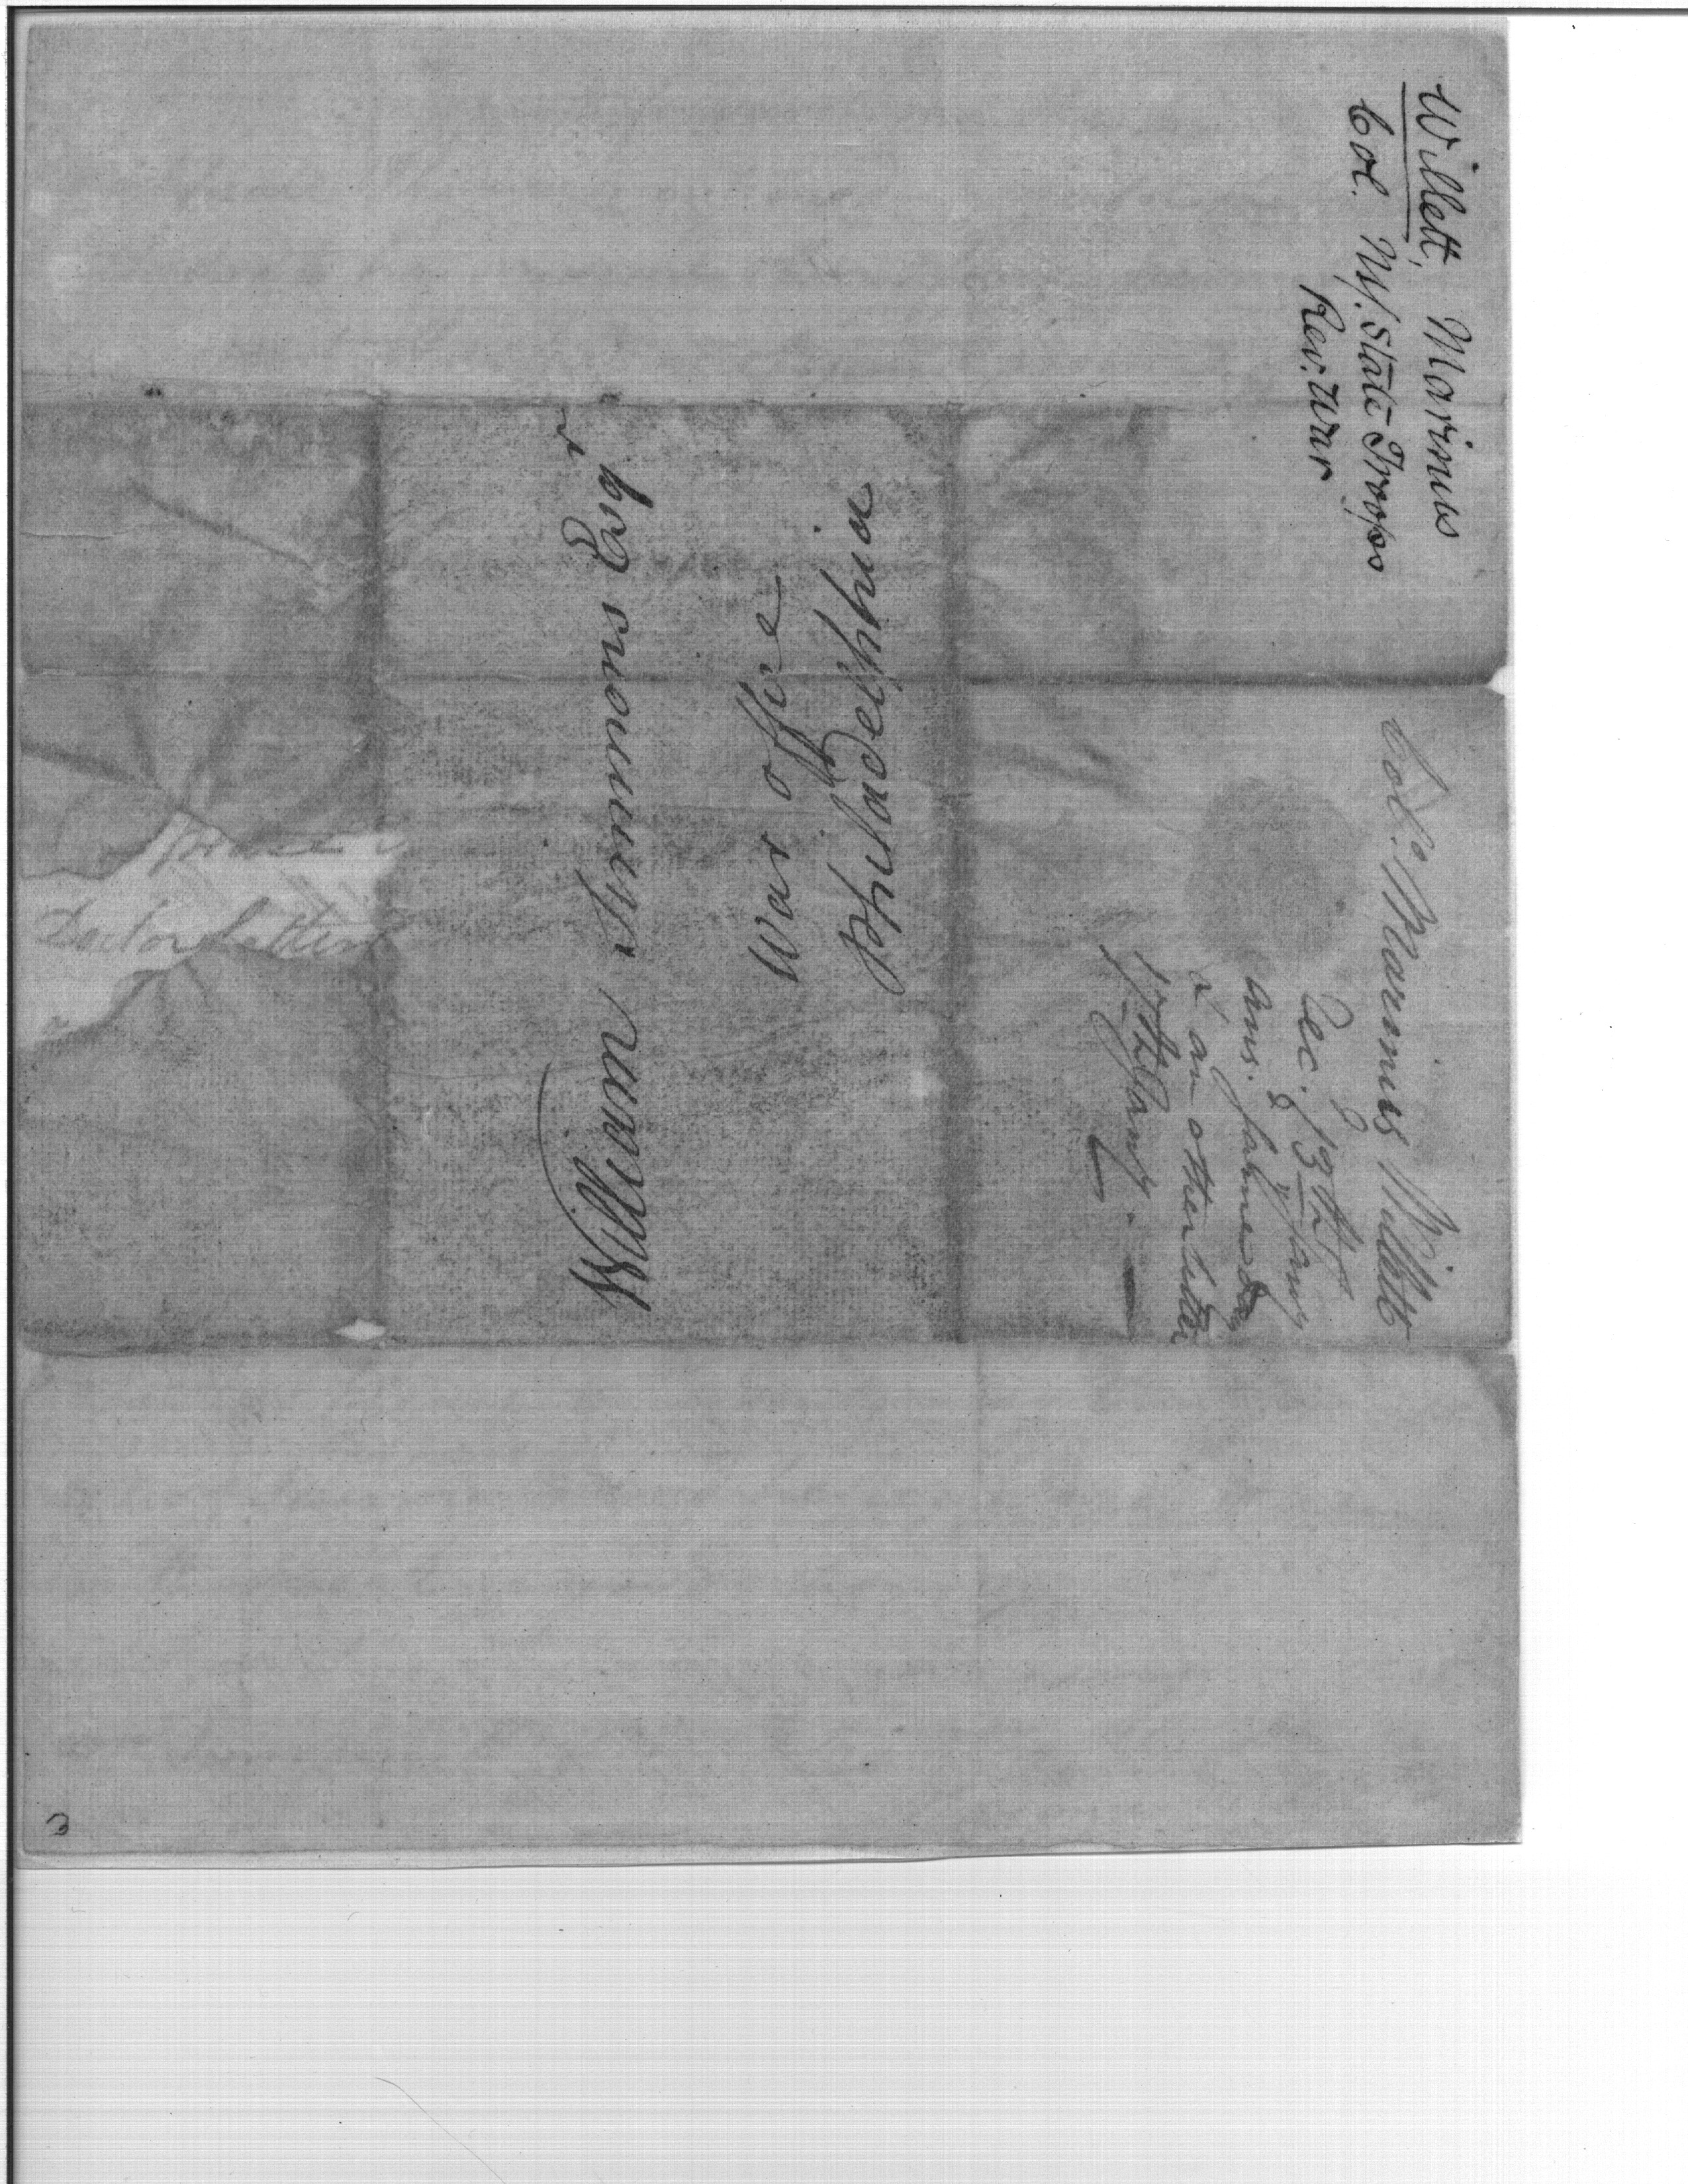 Willett, Marinus
Col. N.Y. State Troops
Rev. War
Col.º Marinus Willett
Dec. 13th
Ans. same day
& an other letter
17th Jany.
William Simmons Esqr
War office
Philadelphia
Doctor
3